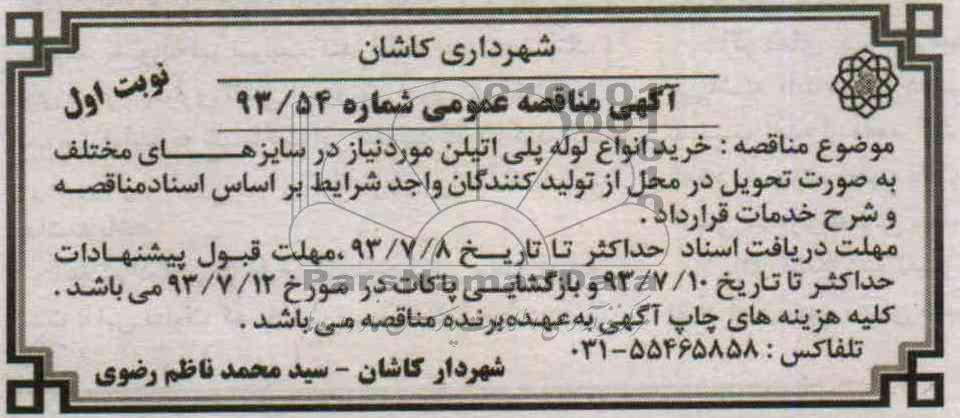 شهرداری کاشان
نوبت اول
آگهی مناقصه عمومی شماره ۹۳/۵۴
موضوع مناقصه : خرید انواع لوله پلی اتیلن موردنیاز در سایزهای مختلف
به صورت تحویل در محل از تولید کنندگان واجد شرایط بر اساس اسناد مناقصه
و شرح خدمات قرارداد .
مهلت دریافت اسناد حداکثر تا تاریخ ۹۳/۷/۸ ،مهلت قبول پیشنهادات
حداکثر تا تاریخ ۹۳/۷/۱۰ و بازگشایی پاکات در مورخ ۹۳/۷/۱۲ می باشد .
کلیه هزینه های چاپ آگهی به عهده برنده مناقصه می باشد .
تلفاکس : ۵۵۴۶۵۸۵۸-۰۳۱
شهردار کاشان - سید محمد ناظم رضوی
ParsNamadData